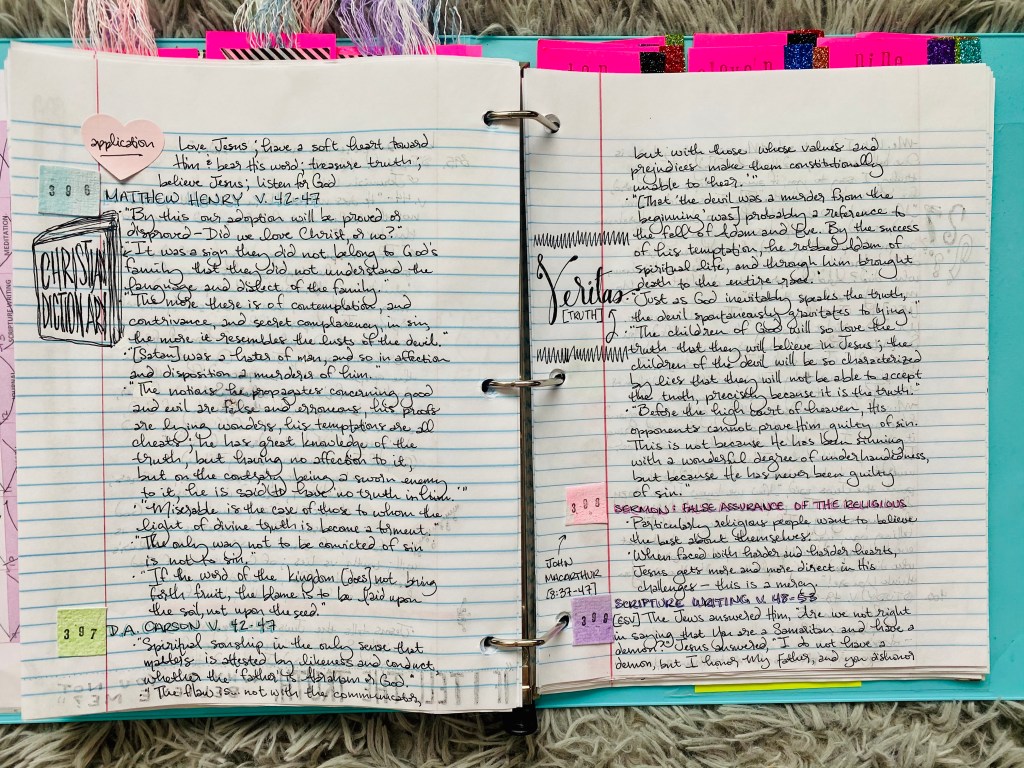 ten
eleven
nine
MEDITATION
SCRIPTURE WRITING
application
Love Jesus; have a soft heart toward
Him & bear His word; treasure truth;
believe Jesus; listen for God
396
MATTHEW HENRY V. 42-47
CHRISTIAN
DICTIONARY
• "By this our adoption will be proved or
disproved - Did we love Christ, or no?"
• "It was a sign they did not belong to God's
family that they did not understand the
language and dialect of the family."
• "The more there is of contemplation, and
contrivance, and secret complacency, in sin,
the more it resembles the lusts of the devil."
• "[Satan] was a hater of man, and so in affection
and disposition a murderer of him."
• "The notions he propagates concerning good
and evil are false and erroneous, his proofs
are lying wonders, his temptations are all
cheats; he has great knowledge of the
truth, but having no affection to it,
but on the contrary being a sworn enemy
to it, he is said to have no truth in him.'"
• "Miserable is the case of those to whom the
light of divine truth is become a torment."
• "The only way not to be convicted of sin
is not to sin."
• "If the word of the kingdom [does] not bring
forth fruit, the blame is to be laid upon
the soil, not upon the seed."
397
D.A. CARSON V. 42-47
• "Spiritual sonship in the only sense that
matters is attested by likeness and conduct,
whether the 'father' is Abraham or God."
• "The flaw is not with the communicator,
but with those whose values and
prejudices make them constitutionally
unable to 'hear.'"
• "[That 'the devil was a murder from the
beginning' was] probably a reference to
the fall of Adam and Eve. By the success
of his temptation, he robbed Adam of
spiritual life, and through him brought
death to the entire race."
Veritas
[TRUTH]
• "Just as God inevitably speaks the truth,
the devil spontaneously gravitates to lying."
• "The children of God will so love the
truth that they will believe in Jesus; the
children of the devil will be so characterized
by lies that they will not be able to accept
the truth, precisely because it is the truth."
• "Before the high court of heaven, His
opponents cannot prove Him guilty of sin.
This is not because He has been sinning
with a wonderful degree of underhandedness,
but because He has never been guilty
of sin."
398
SERMON: FALSE ASSURANCE OF THE RELIGIOUS
JOHN
MACARTHUR
[8:37-47]
• Particularly religious people want to believe
the best about themselves.
• When faced with harder and harder hearts,
Jesus gets more and more direct in His
challenges - this is a mercy.
399
SCRIPTURE WRITING V. 48-53
[ESV] The Jews answered Him, "Are we not right
in saying that You are a Samaritan and have a
demon?" Jesus answered, "I do not have a
demon, but I honor My Father, and you dishonor